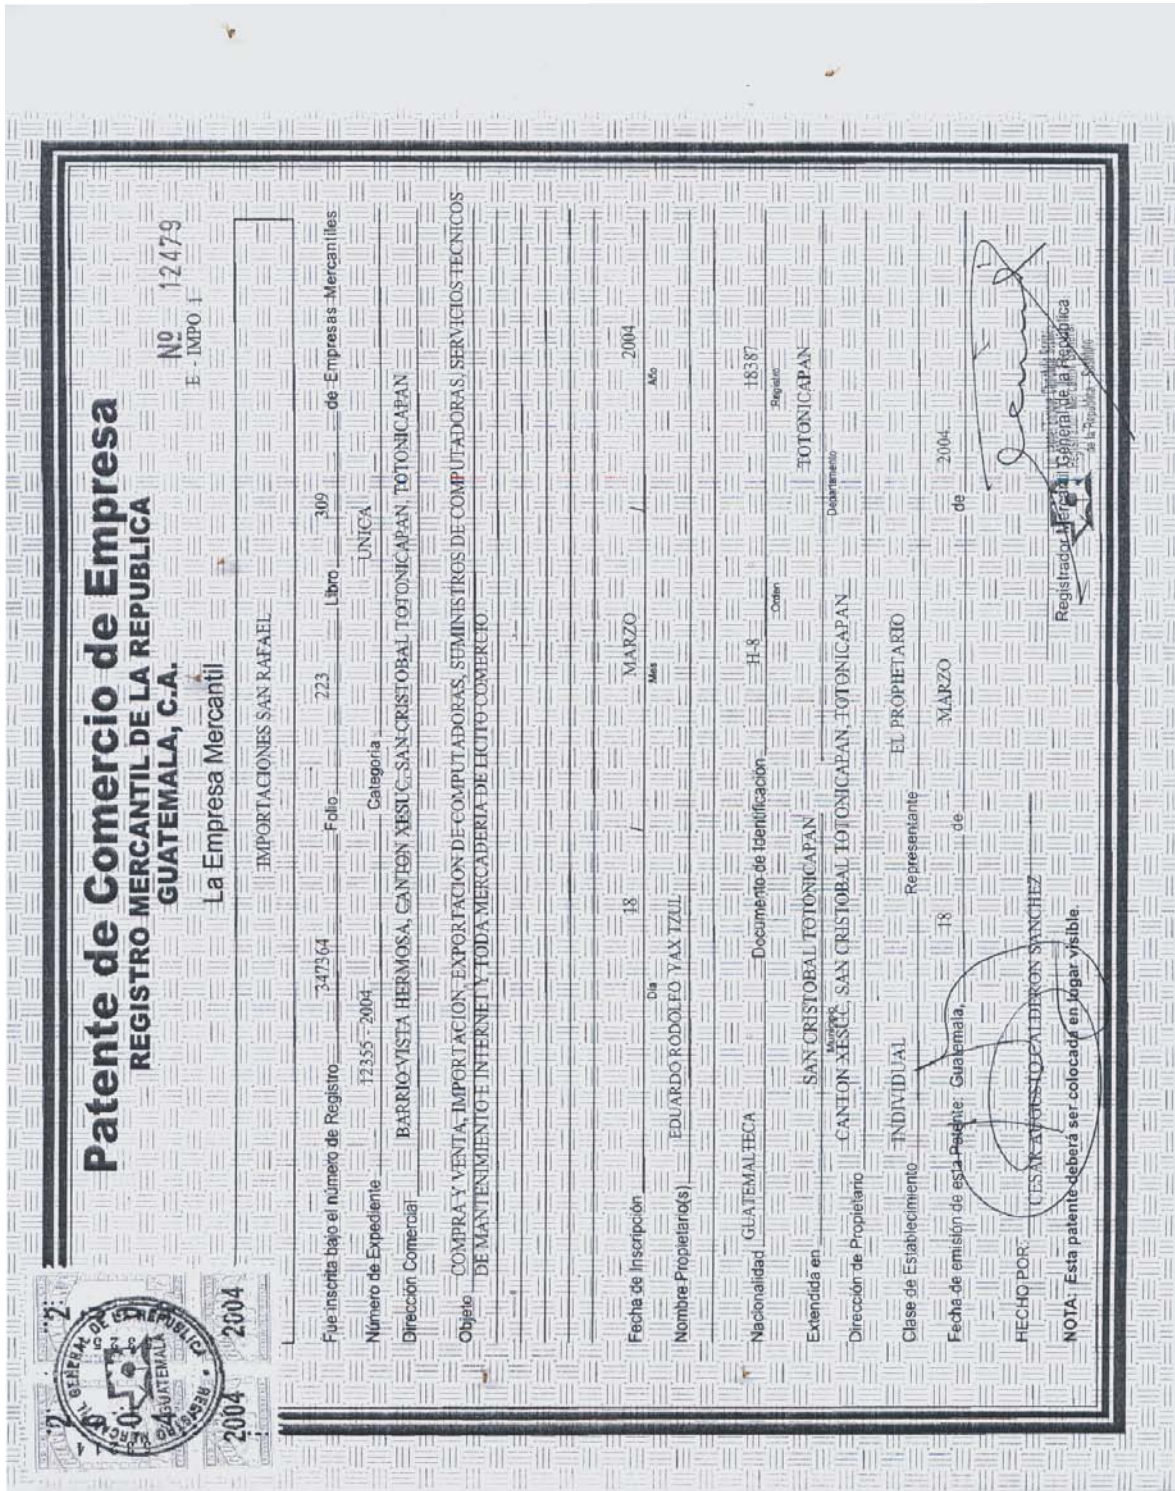 Patente de Comercio de Empresa
REGISTRO MERCANTIL DE LA REPUBLICA
GUATEMALA, C.A.
Nº 12479
E - IMPO 1
La Empresa Mercantil
IMPORTACIONES SAN RAFAEL
Fue inscrita bajo el número de Registro 347364 Folio 223 Libro 309 de Empresas Mercantiles
Número de Expediente 12355-2004 Categoría UNICA
Dirección Comercial BARRIO VISTA HERMOSA, CANTON XESUC, SAN CRISTOBAL TOTONICAPAN, TOTONICAPAN
Objeto COMPRA Y VENTA, IMPORTACION, EXPORTACION DE COMPUTADORAS, SUMINISTROS DE COMPUTADORAS, SERVICIOS TECNICOS
DE MANTENIMIENTO E INTERNET Y TODA MERCADERIA DE LICITO COMERCIO
Fecha de Inscripción 18 / MARZO / 2004
Día Mes Año
Nombre Propietario(s) EDUARDO RODOLFO YAX TZUL
Nacionalidad GUATEMALTECA Documento de Identificación H-8 18387
Orden Registro
Extendida en SAN CRISTOBAL TOTONICAPAN TOTONICAPAN
Municipio Departamento
Dirección de Propietario CANTON XESUC, SAN CRISTOBAL TOTONICAPAN, TOTONICAPAN
Clase de Establecimiento INDIVIDUAL Representante EL PROPIETARIO
Fecha de emisión de esta Patente: Guatemala, 18 de MARZO de 2004
HECHO POR: CESAR AUGUSTO CALDERON SANCHEZ
Registrador Mercantil General de la República
de la República - Sustituto
NOTA: Esta patente deberá ser colocada en lugar visible.
REGISTRO MERCANTIL GENERAL DE LA REPUBLICA
GUATEMALA
2004 2004